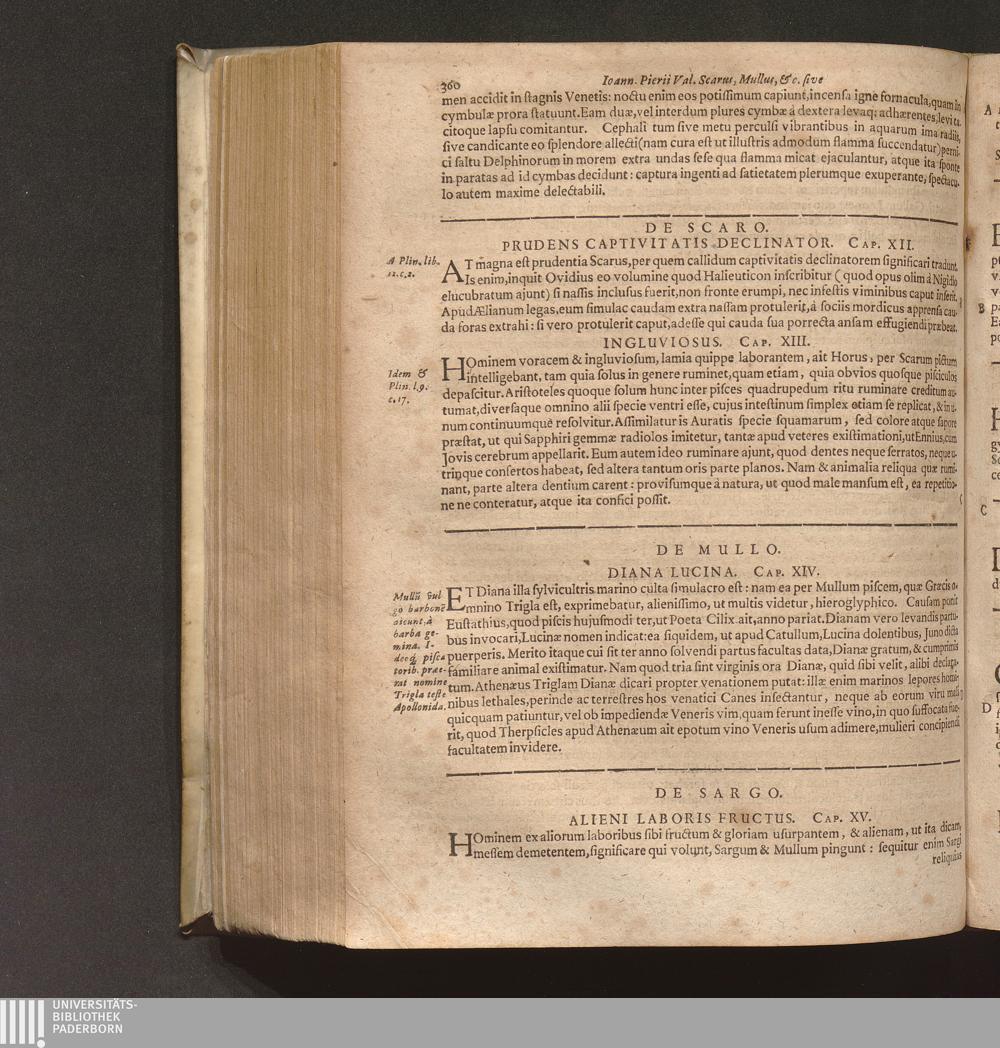 360
Ioann. Pierii Val. Scarus, Mullus, &c. sive
men accidit in stagnis Venetis: noctu enim eos potissimum capiunt, incensa igne fornacula, quam in
cymbulæ prora statuunt. Eam duæ, vel interdum plures cymbæ á dextera levaq; adhærentes, levi ta
citoque lapsu comitantur. Cephali tum sive metu perculsi vibrantibus in aquarum ima radiis,
sive candicante eo splendore allecti (nam cura est ut illustris admodum flamma succendatur) perni-
ci saltu Delphinorum in morem extra undas sese qua flamma micat ejaculantur, atque ita sponte
in paratas ad id cymbas decidunt: captura ingenti ad satietatem plerumque exuperante, spectacu-
lo autem maxime delectabili.
DE SCARO.
PRUDENS CAPTIVITATIS DECLINATOR. CAP. XII.
A Plin. lib.
12. c. 2.
AT magna est prudentia Scarus, per quem callidum captivitatis declinatorem significari tradunt.
Is enim, inquit Ovidius eo volumine quod Halieuticon inscribitur (quod opus olim á Nigidio
elucubratum ajunt) si nassis inclusus fuerit, non fronte erumpi, nec infestis viminibus caput inserit.
Apud Ælianum legas, eum simulac caudam extra nassam protulerit, á sociis mordicus apprensa cau-
da foras extrahi: si vero protulerit caput, adesse qui cauda sua porrecta ansam effugiendi præbeat.
INGLUVIOSUS. CAP. XIII.
Idem &
Plin. l. 9.
c. 17.
HOminem voracem & ingluviosum, lamia quippe laborantem, ait Horus, per Scarum pictum
intelligebant, tam quia solus in genere ruminet, quam etiam, quia obvios quosque pisciculos
depascitur. Aristoteles quoque solum hunc inter pisces quadrupedum ritu ruminare creditum au-
tumat, diversaque omnino alii specie ventri esse, cujus intestinum simplex etiam se replicat, & in u-
num continuumque resolvitur. Assimilatur is Auratis specie squamarum, sed colore atque sapore
præstat, ut qui Sapphiri gemmæ radiolos imitetur, tantæ apud veteres existimationi, ut Ennius, cum
Jovis cerebrum appellarit. Eum autem ideo ruminare ajunt, quod dentes neque serratos, neque u-
trinque consertos habeat, sed altera tantum oris parte planos. Nam & animalia reliqua quæ rumi-
nant, parte altera dentium carent: provisumque à natura, ut quod male mansum est, ea repetitio-
ne ne conteratur, atque ita confici possit.
DE MULLO.
DIANA LUCINA. CAP. XIV.
Mullũ vul
go barbonē
aicunt, à
barba ge-
mina. I-
deoq; pisca
torib. præe-
rat nomine
Trigla teste
Apollonida.
ET Diana illa sylvicultris marino culta simulacro est: nam ea per Mullum piscem, quæ Græcis o-
mnino Trigla est, exprimebatur, alienissimo, ut multis videtur, hieroglyphico. Causam ponit
Eustathius, quod piscis hujusmodi ter, ut Poeta Cilix ait, anno pariat. Dianam vero levandis partu-
bus invocari, Lucinæ nomen indicat: ea siquidem, ut apud Catullum, Lucina dolentibus, Juno dicta
puerperis. Merito itaque cui sit ter anno solvendi partus facultas data, Dianæ gratum, & cumprimis
familiare animal existimatur. Nam quod tria sint virginis ora Dianæ, quid sibi velit, alibi declara-
tum. Athenæus Triglam Dianæ dicari propter venationem putat: illæ enim marinos lepores homi-
nibus lethales, perinde ac terrestres hos venatici Canes insectantur, neque ab eorum viru mali
quicquam patiuntur, vel ob impediendæ Veneris vim, quam ferunt inesse vino, in quo suffocata fue-
rit, quod Therpsicles apud Athenæum ait epotum vino Veneris usum adimere, mulieri concipiendi
facultatem invidere.
DE SARGO.
ALIENI LABORIS FRUCTUS. CAP. XV.
HOminem ex aliorum laboribus sibi fructum & gloriam usurpantem, & alienam, ut ita dicam,
messem demetentem, significare qui volunt, Sargum & Mullum pingunt: sequitur enim Sargi
reliquias
A
B
C
D
UNIVERSITÄTS-
BIBLIOTHEK
PADERBORN